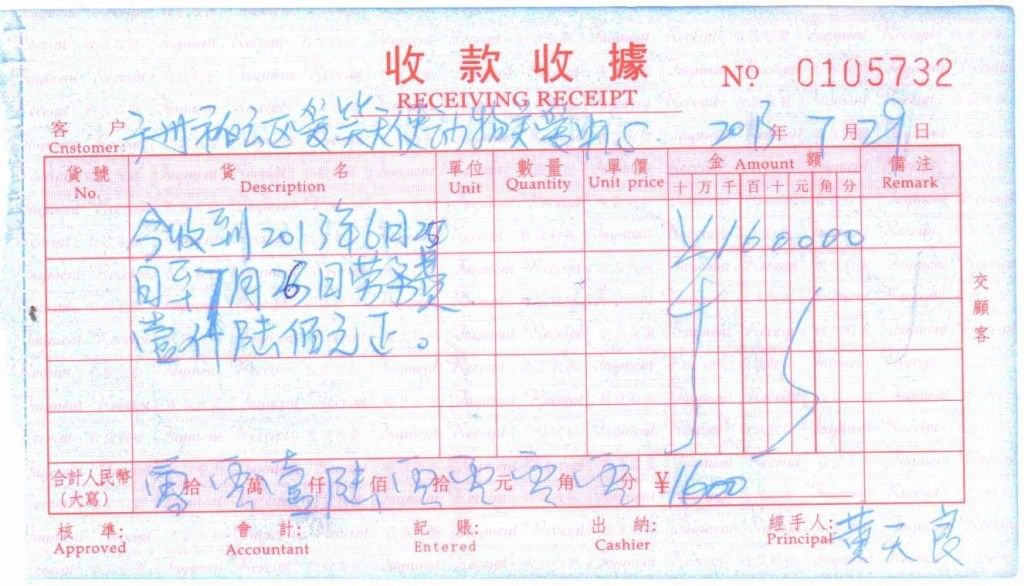 收款收據
RECEIVING RECEIPT
Nº 0105732
客 戶
Cnstomer: 广州市白云区爱笑天使动物关爱中心 2013年7月29日
貨號 No. 貨名 Description 單位 Unit 數量 Quantity 單價 Unit price 金 Amount 額 十 万 千 百 十 元 角 分 備注 Remark
今收到2013年6月25 ¥160000
日至7月26日劳务费
壹仟陆佰元正。
交顧客
合計人民幣(大寫) 零拾零萬壹仟陆佰零拾零元零角零分 ¥1600
核準: Approved 會計: Accountant 記賬: Entered 出納: Cashier 經手人: Principal 黄天良